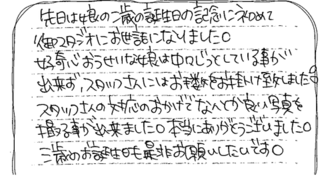 先日は娘の二歳の誕生日の記念に初めて
御スタジオにお世話になりました。
好奇心おうせいな娘は中々じっとしている事が
出来ず、スタッフさんにはお手数をお掛けて致しました。
スタッフさんの対応のおかげでなんとか良い写真を
撮る事が出来ました。本当にありがとうございました。
三歳のお誕生日も是非お願いしたいです。